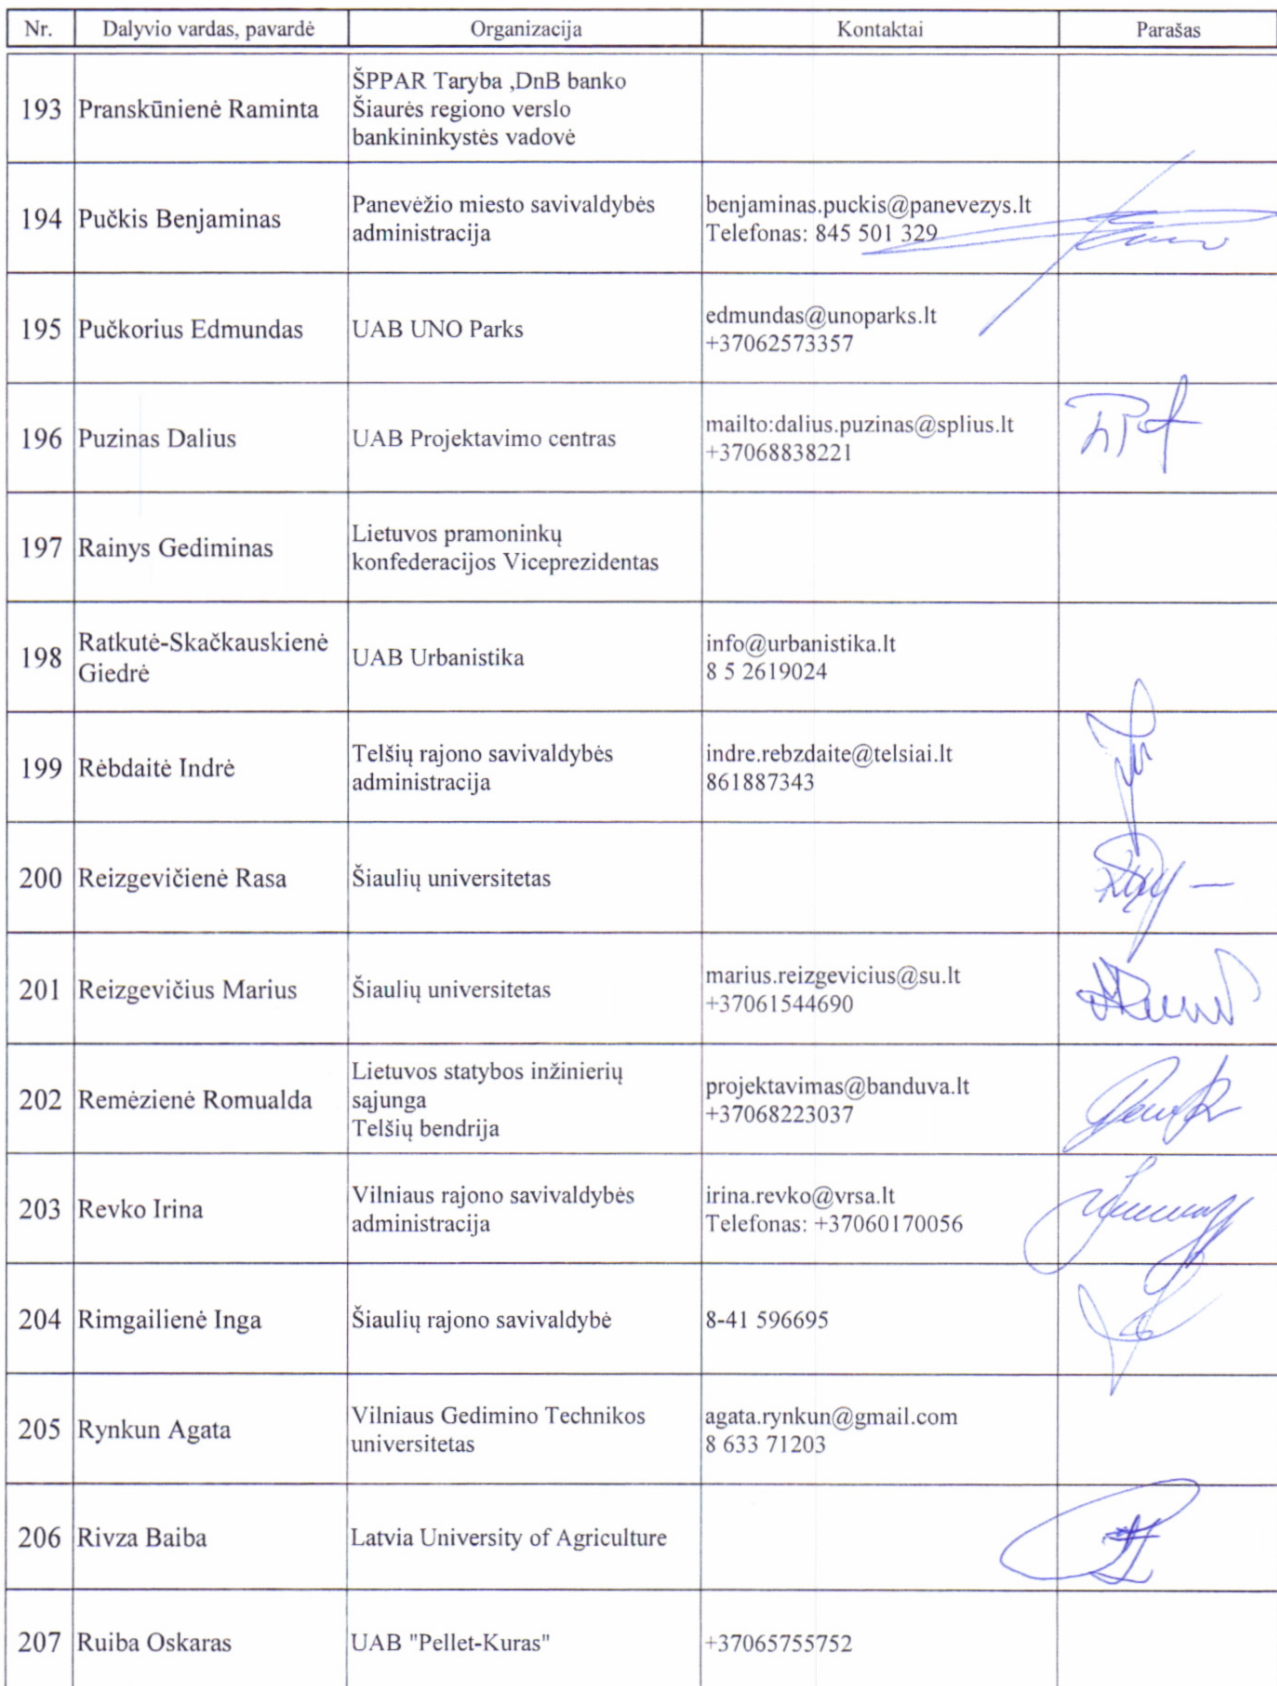 Nr. Dalyvio vardas, pavardė Organizacija Kontaktai Parašas
193 Pranskūnienė Raminta
ŠPPAR Taryba ,DnB banko
Šiaurės regiono verslo
bankininkystės vadovė
194 Pučkis Benjaminas
Panevėžio miesto savivaldybės
administracija
benjaminas.puckis@panevezys.lt
Telefonas: 845 501 329
195 Pučkorius Edmundas
UAB UNO Parks
edmundas@unoparks.lt
+37062573357
196 Puzinas Dalius
UAB Projektavimo centras
mailto:dalius.puzinas@splius.lt
+37068838221
197 Rainys Gediminas
Lietuvos pramoninkų
konfederacijos Viceprezidentas
198 Ratkutė-Skačkauskienė
Giedrė
UAB Urbanistika
info@urbanistika.lt
8 5 2619024
199 Rėbdaitė Indrė
Telšių rajono savivaldybės
administracija
indre.rebzdaite@telsiai.lt
861887343
200 Reizgevičienė Rasa
Šiaulių universitetas
201 Reizgevičius Marius
Šiaulių universitetas
marius.reizgevicius@su.lt
+37061544690
202 Remėzienė Romualda
Lietuvos statybos inžinierių
sąjunga
Telšių bendrija
projektavimas@banduva.lt
+37068223037
203 Revko Irina
Vilniaus rajono savivaldybės
administracija
irina.revko@vrsa.lt
Telefonas: +37060170056
204 Rimgailienė Inga
Šiaulių rajono savivaldybė
8-41 596695
205 Rynkun Agata
Vilniaus Gedimino Technikos
universitetas
agata.rynkun@gmail.com
8 633 71203
206 Rivza Baiba
Latvia University of Agriculture
207 Ruiba Oskaras
UAB "Pellet-Kuras"
+37065755752